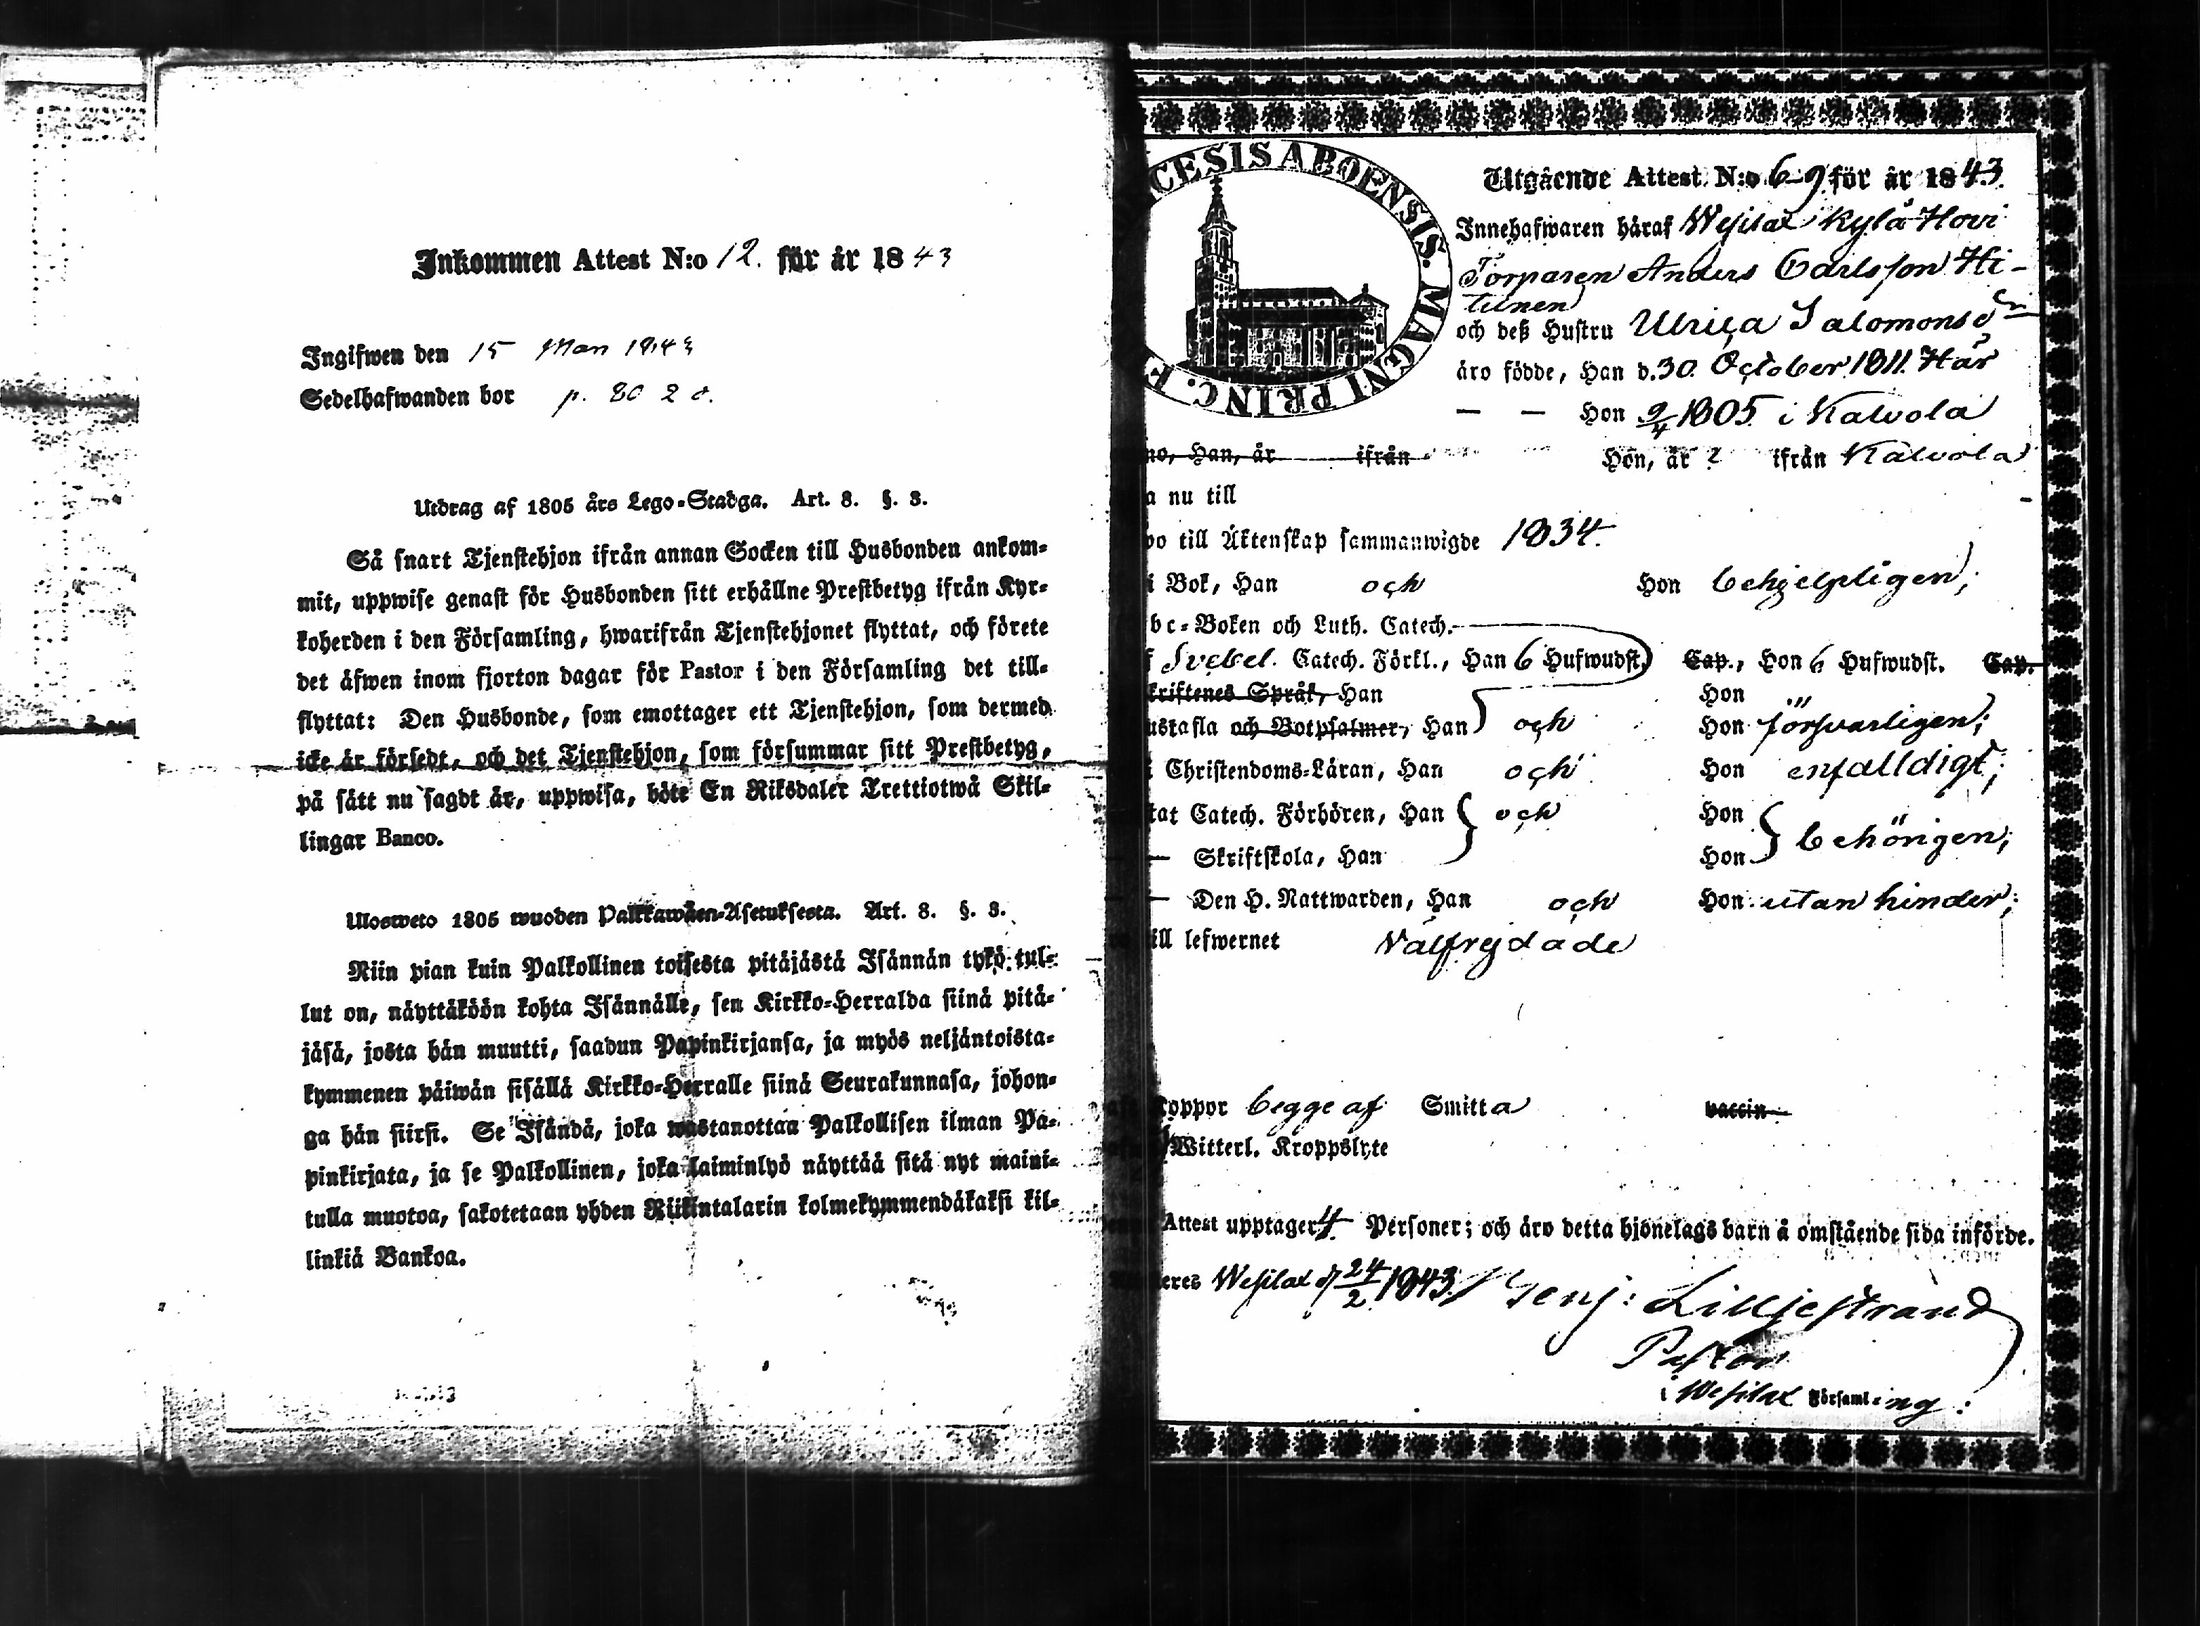 Inkommen Attest N:o 12. för år 1843
Ingifwen den 15 Mars 1843
Sedelhafwanden bor p.
Utdrag af 1805 års Lego-Stadga. Art. 8. §. 3.
Så snart Tjenstehjon ifrån annan Socken till Husbonden ankom-
mit, uppwise genast för Husbonden sitt erhållne Prestbetyg ifrån Kyr-
koherden i den Församling, hwarifrån Tjenstehjonet flyttat, och förete
det äfwen inom fjorton dagar för Pastor i den Församling det till-
flyttat: Den Husbonde, som emottager ett Tjenstehjon, som dermed
icke är försedt, och det Tjenstehjon, som försummar sitt Prestbetyg,
på sätt nu sagdt är, uppwisa, böte En Riksdaler Trettiotwå Skil-
lingar Banco.
Ulosweto 1805 wuoden Palkkawäen-Asetuksesta. Art. 8. §. 3.
Niin pian kuin Palkollinen toisesta pitäjästä Isännän tykö tul-
lut on, näyttäköön kohta Isännälle, sen Kirkko-Herralda siinä pitä-
jäsä, josta hän muutti, saadun Papinkirjansa, ja myös neljäntoista-
kymmenen päiwän sisällä Kirkko-Herralle siinä Seurakunnasa, johon-
ga hän siirsi. Se Isändä, joka wastanottaa Palkollisen ilman Pa-
pinkirjata, ja se Palkollinen, joka laiminlyö näyttää sitä nyt maini-
tulla muotoa, sakotetaan yhden Riikintalarin kolmekymmendäkaksi kil-
linkiä Bankoa.
CESIS ABOENSIS. MAGNI PRINC. F
Utgående Attest N:o 69 för år 1843.
Innehafwaren häraf Wesilax Kylä-Hovi
Torparen Anders Carlsson Hi-
tunen
och deß Hustru Ulrica Salomonsdr
äro födde, Han d. 30 October 1811 Här
— — Hon 9/4 1805 i Kalvola
no, Han, år ifrån Hon, år ? ifrån Kalvola
a nu till
bo till Äktenskap sammanwigde 1834.
i Bok, Han och Hon behjelpligen;
bc-Boken och Luth. Catech.
f Svebel. Catech. Förkl., Han 6 Hufwudst. Cap., Hon 6 Hufwudst. Cap.
kriftenes Språk, Han Hon
ustafla och Botpsalmer, Han och Hon försvarligen;
i Christendoms-Läran, Han och Hon enfalldigt;
tat Catech. Förhören, Han och Hon
— Skriftskola, Han Hon behörigen;
— Den H. Nattwarden, Han och Hon utan hinder;
till lefwernet Välfrejdade
koppor begge af Smitta vaccin
Witterl. Kroppslyte
Attest upptager 4 Personer; och äro detta hjonelags barn å omstående sida införde.
eres Wesilax d 24/2 1843. Benj: Lilljestrand
Pastor
i Wesilax Församl:ing: